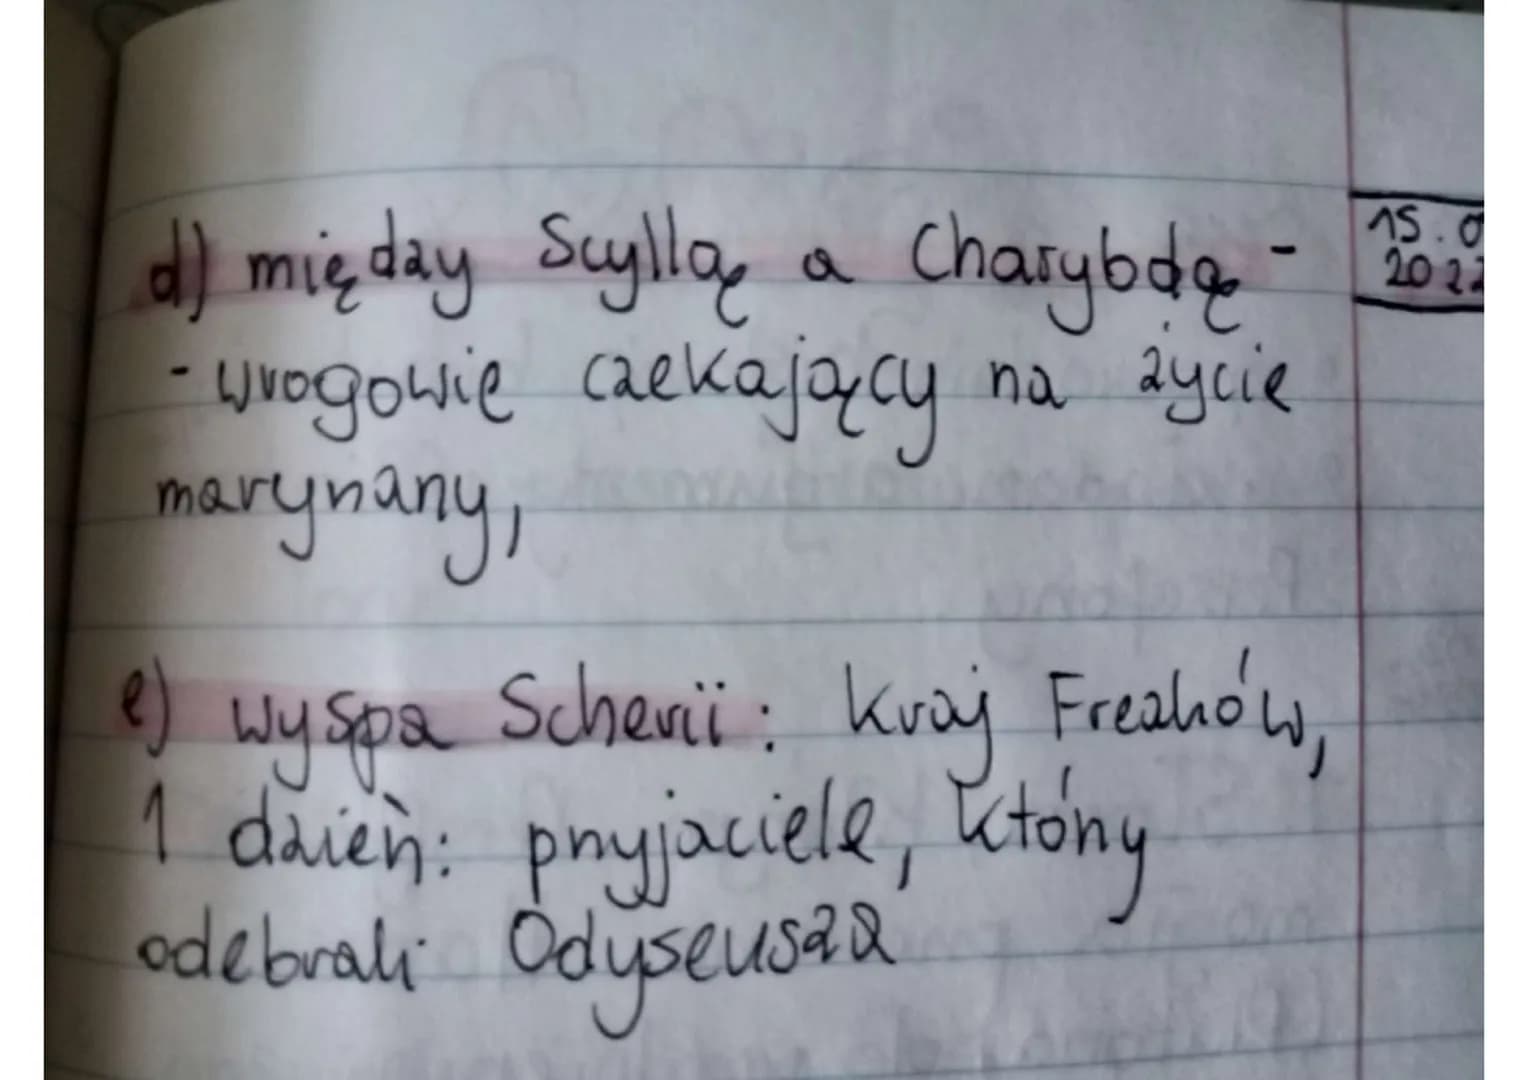 d) między Scyllą a Charybdą -
- wrogowie czekający na życie
marynarzy,
e) wyspa Scherii: kraj Freaków,
1 dzień: przyjaciele, którzy
odebrali Odyseusza
15.0
2022